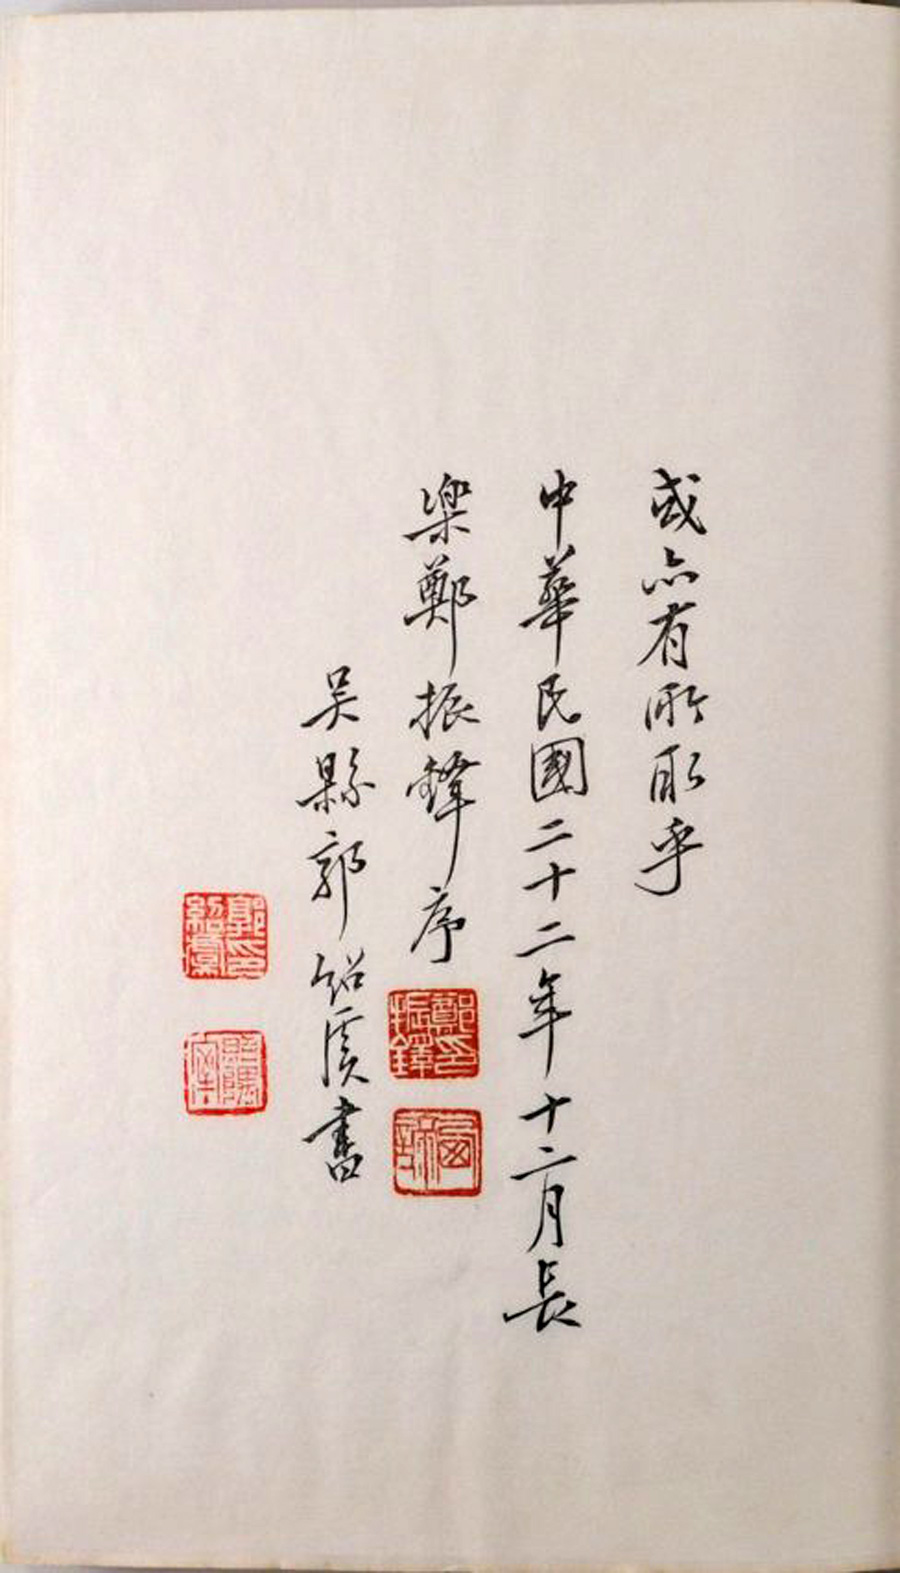 或亦有所取乎
中華民國二十二年十二月長
樂鄭振鐸序
鄭印振鐸
西諦
吳縣郭紹虞書
郭印紹虞
照隅室